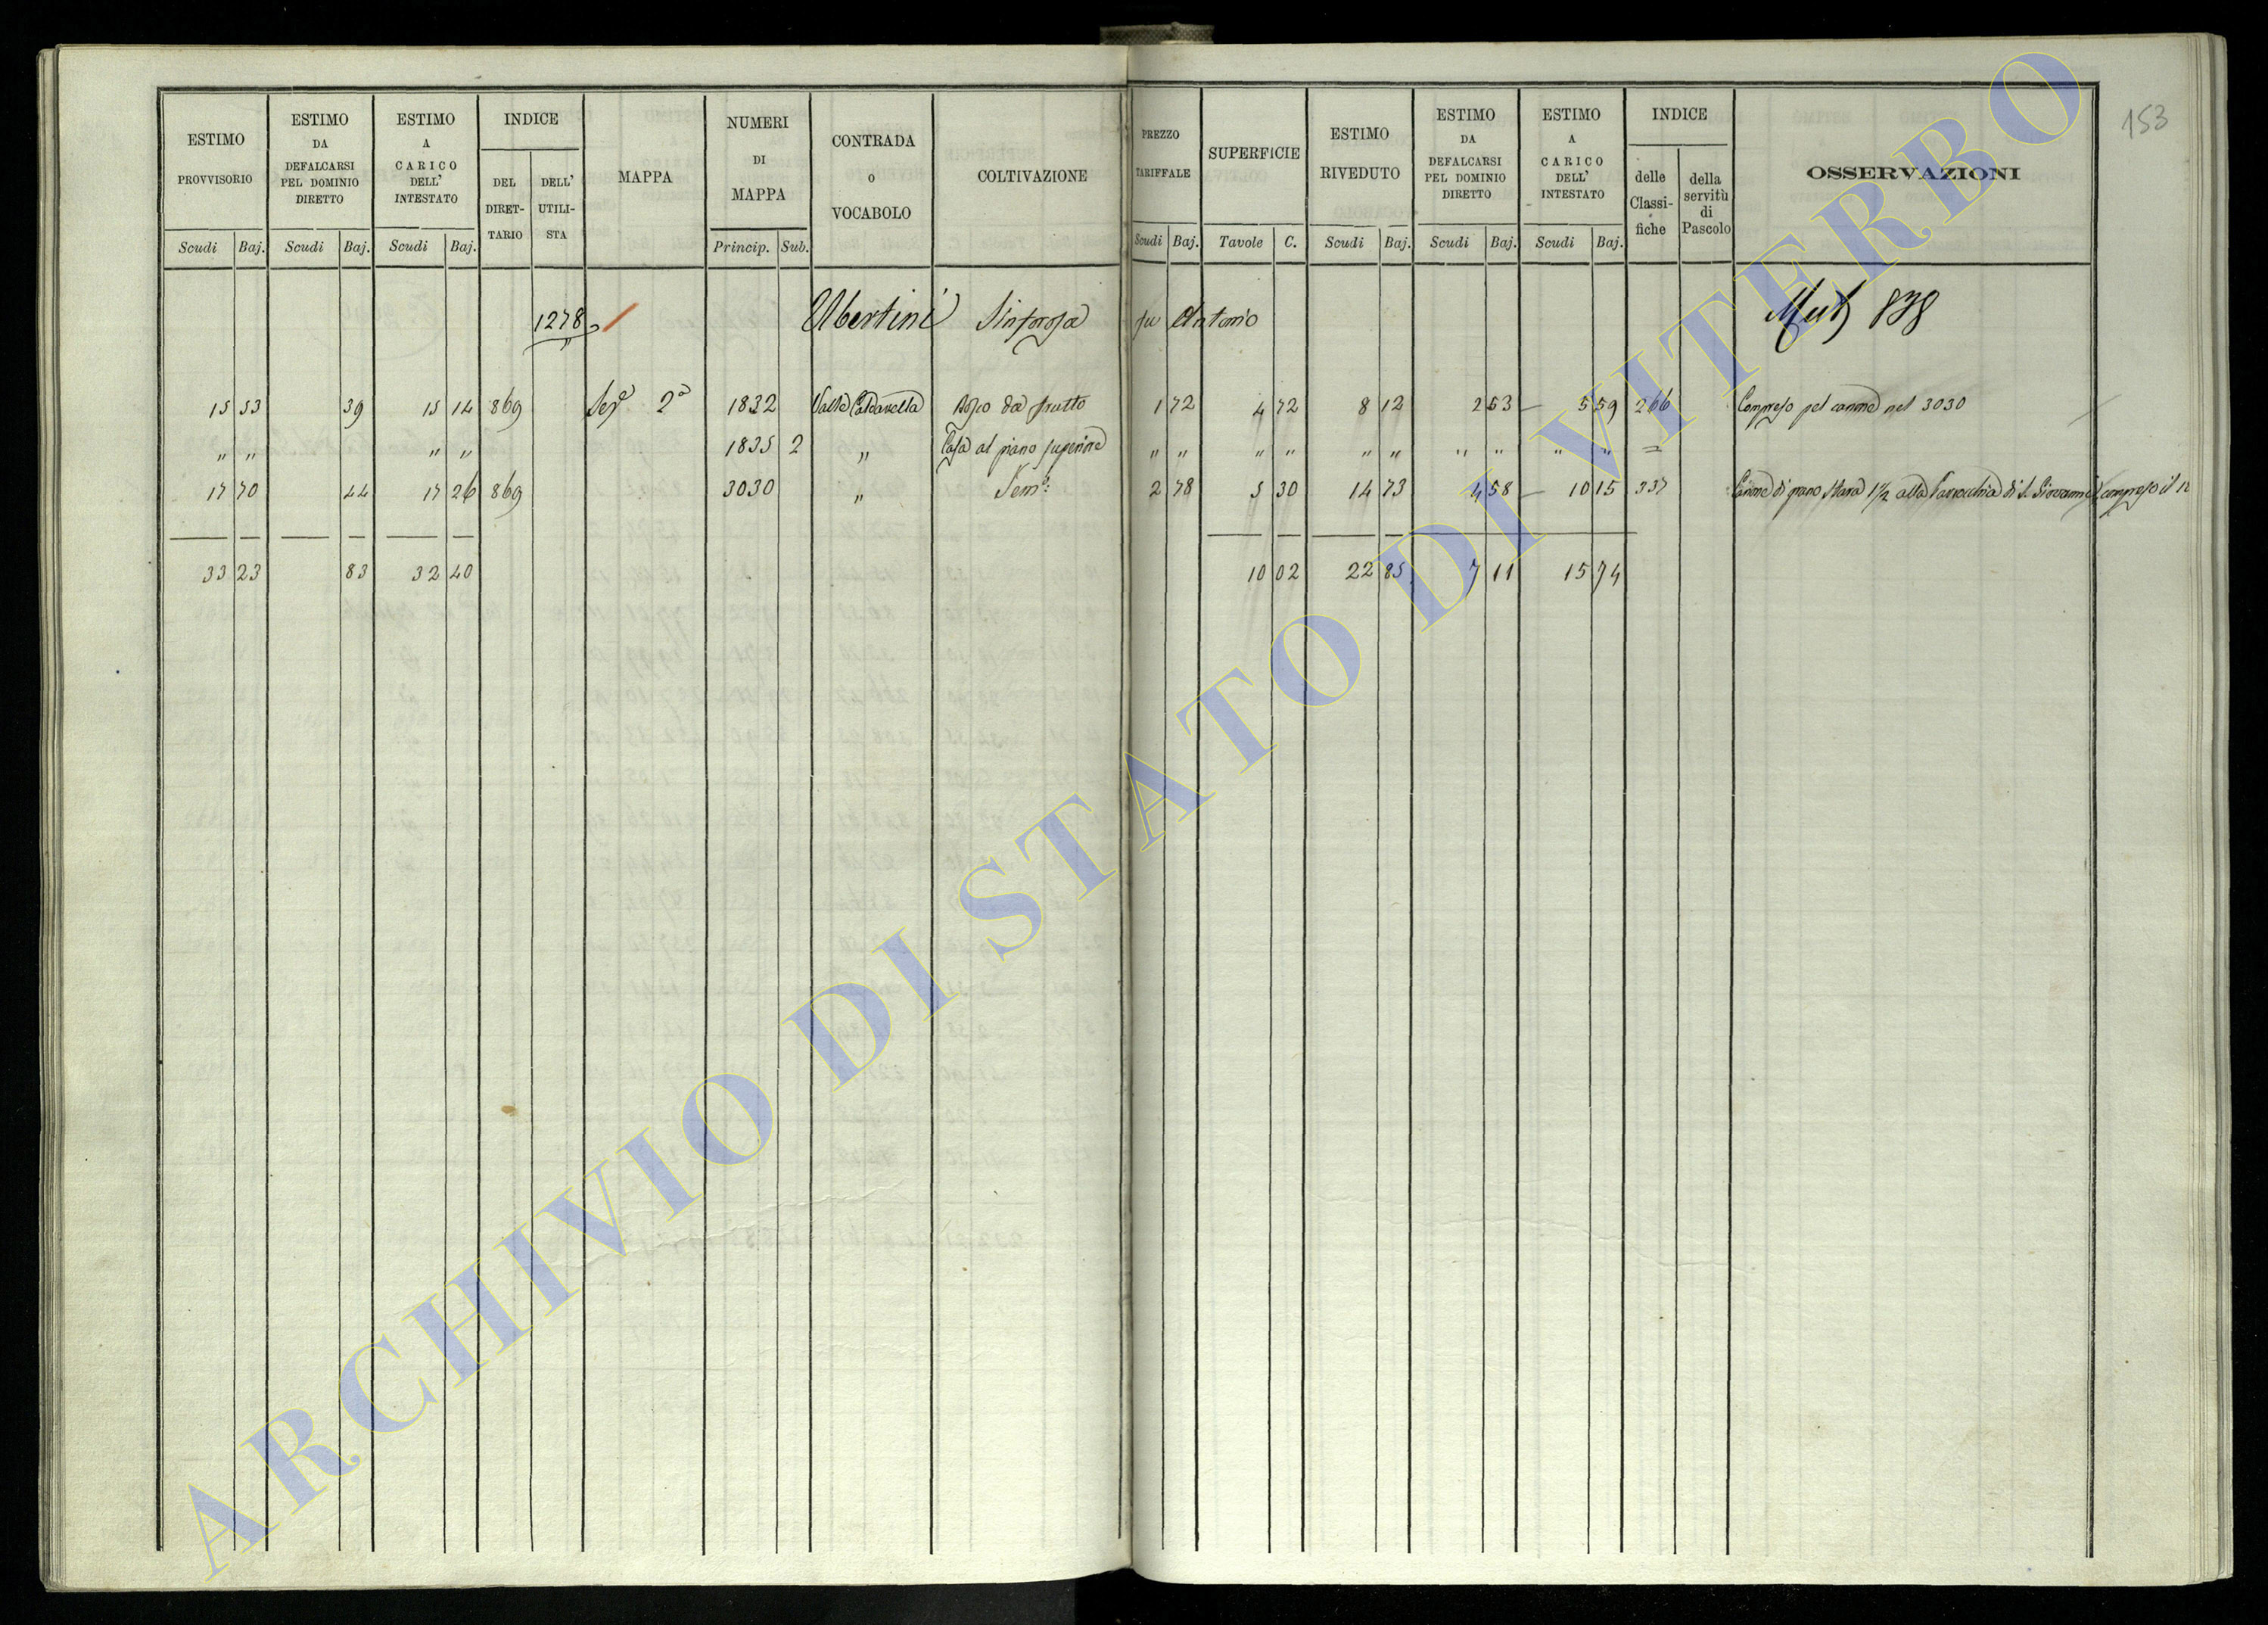 153
ESTIMO PROVVISORIO
ESTIMO DA DEFALCARSI PEL DOMINIO DIRETTO
ESTIMO A CARICO DELL' INTESTATO
INDICE
DEL DIRET-TARIO
DELL' UTILI-STA
MAPPA
NUMERI DI MAPPA
CONTRADA o VOCABOLO
COLTIVAZIONE
PREZZO TARIFFALE
SUPERFICIE
ESTIMO RIVEDUTO
ESTIMO DA DEFALCARSI PEL DOMINIO DIRETTO
ESTIMO A CARICO DELL' INTESTATO
INDICE
delle Classi-fiche
della servitù di Pascolo
OSSERVAZIONI
Scudi Baj. Scudi Baj. Scudi Baj. Princip. Sub. Scudi Baj. Tavole C. Scudi Baj. Scudi Baj. Scudi Baj.
1278 Ubertini Sinforosa fu Antonio Mut 838
15 53 39 15 14 869 Sez 2a 1832 Valle Caldarella da frutto 1 72 4 72 8 12 2 53 — 5 59 266 Compreso pel canone nel 3030
" " " " 1835 2 " Casa al piano superiore " " " " " " " " " " =
17 70 44 17 26 869 3030 " Sem: 2 78 5 30 14 73 4 58 — 10 15 337 Canone di grano Stara 1 1/2 alla Parrocchia di S. Giovanni compreso il
33 23 83 32 40 10 02 22 85 7 11 15 74
ARCHIVIO DI STATO DI VITERBO